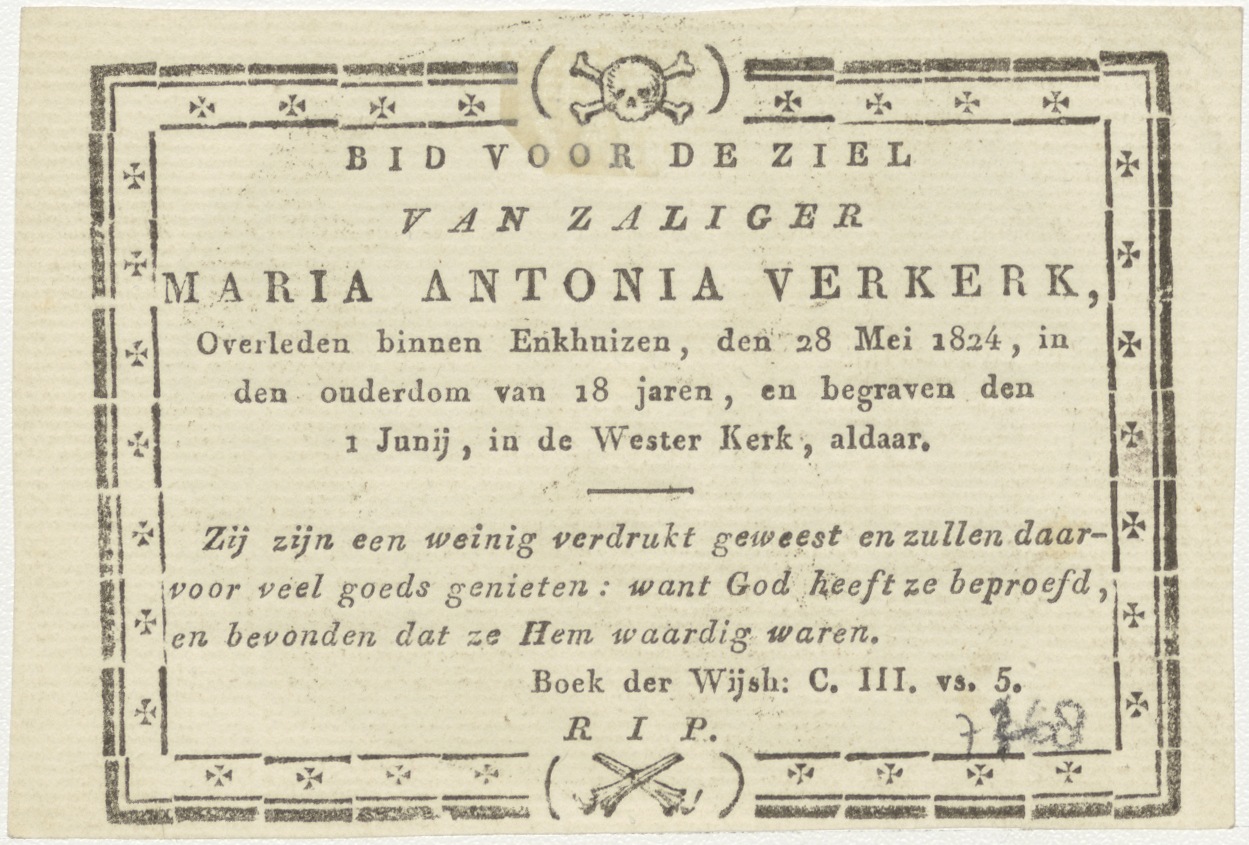 BID VOOR DE ZIEL
VAN ZALIGER
MARIA ANTONIA VERKERK,
Overleden binnen Enkhuizen, den 28 Mei 1824, in
den ouderdom van 18 jaren, en begraven den
1 Junij, in de Wester Kerk, aldaar.
Zij zijn een weinig verdrukt geweest en zullen daar-
voor veel goeds genieten: want God heeft ze beproefd,
en bevonden dat ze Hem waardig waren.
Boek der Wijsh: C. III. vs. 5.
R I P.